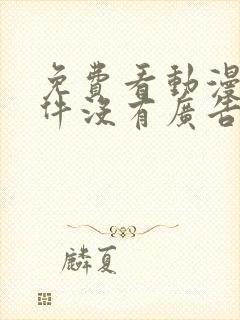 免費看動漫
件沒有廣告
麟夏